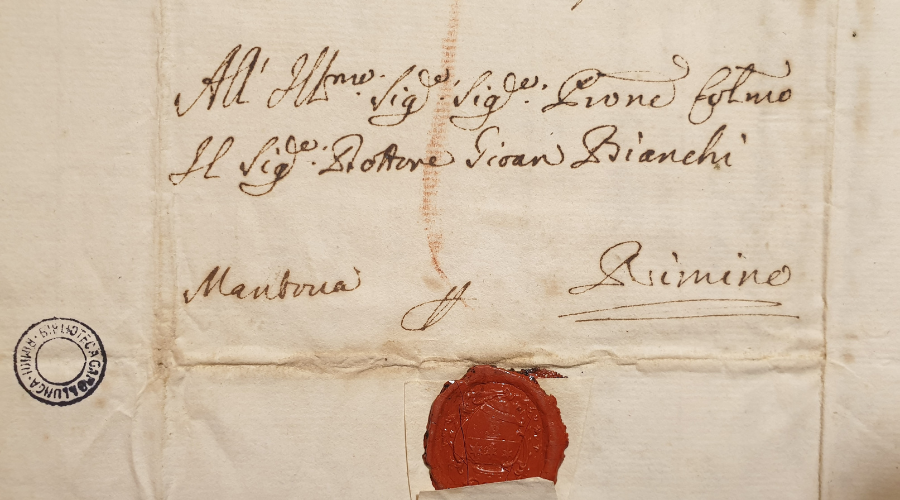 All' Illmo. Sigre. Sigre. Prone Colmo
Il Sigre. Dottore Gioan Bianchi
Mantoua
Rimino
BIBLIOTECA GAMBALUNGA · RIMINI ·